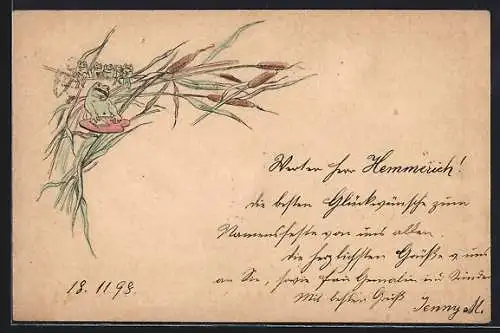 Werter Herr Hemmerich!
die besten Glückwünsche zum
Namensfeste von uns allen.
die herzlichsten Grüße v. uns
an Sie, sowie Frau Gemalin und Kinder
Mit besten Gruß Jenny M.
18. 11. 98.